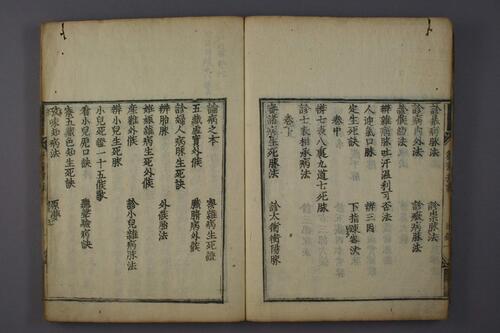 診暴病脉法 診祟脉法
診病內外法 診癥病脉法
察候脉法
辨雜病脉吐汗溫利可否法
人迎氣口脉 辨三因
定生死訣 下指踈密法
卷中
辨七表八裏九道七死脉
診七表相承病法 診太衝衝陽脉
卷下
審諸病生死脉法
論病之本 察雜病生死證
五臟虛實外候 臟腑病外候
診婦人病脉生死訣
辨胎脉 外候胎法
妊娠雜病生死外候
產難外候 診小兒雜病脉法
辨小兒生死脉
小兒死證一十五候歌
看小兒虎口訣 聽聲驗病訣
察五臟色知生死訣
攷味知病法 原夢